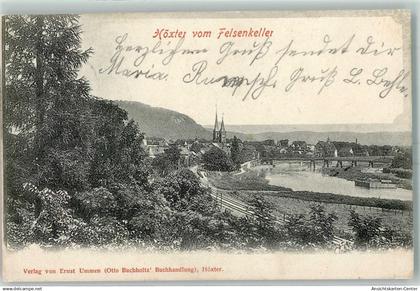 Höxter vom Felsenkeller
Herzlichen Gruß sendet dir
Maria
Gruß L.
Verlag von Ernst Ummen (Otto Buchholtz' Buchhandlung), Höxter.
AnsichtskartenCenter